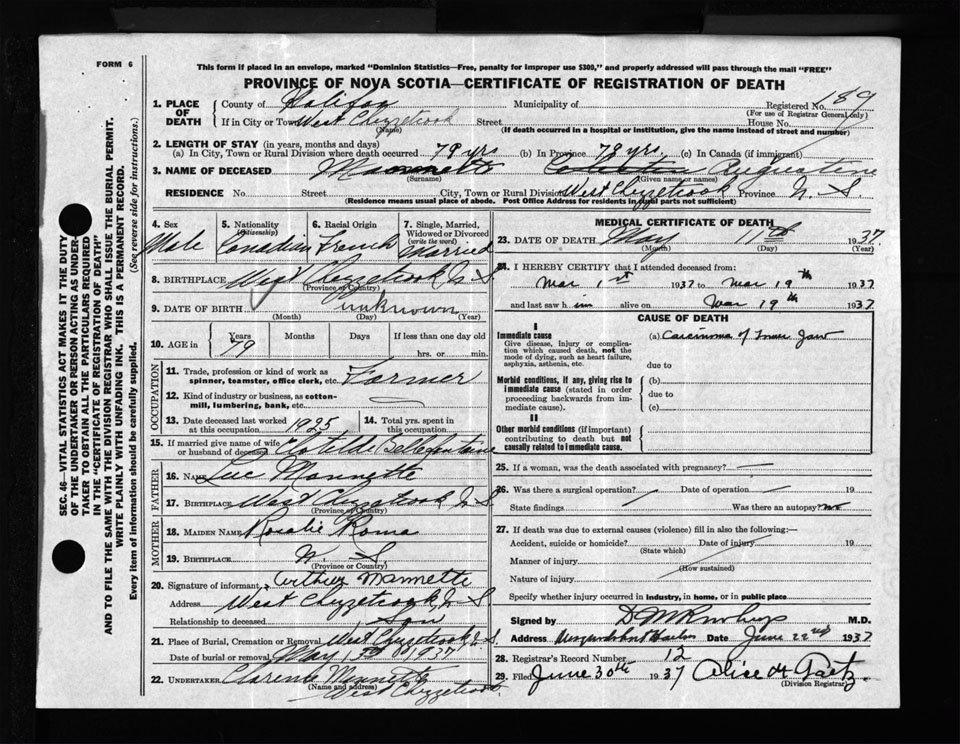 FORM 6
This form if placed in an envelope, marked "Dominion Statistics—Free, penalty for improper use $300," and properly addressed will pass through the mail "FREE"
PROVINCE OF NOVA SCOTIA—CERTIFICATE OF REGISTRATION OF DEATH
1. PLACE OF DEATH
County of Halifax Municipality of Registered No. 189
(For use of Registrar General only)
If in City or Town West Chezzetcook Street House No.
(Name) (If death occurred in a hospital or institution, give the name instead of street and number)
2. LENGTH OF STAY (in years, months and days)
(a) In City, Town or Rural Division where death occurred 79 yrs (b) In Province 79 yrs. (c) In Canada (if immigrant)
3. NAME OF DECEASED Mannette Augustine
(Surname) (Given name or names)
RESIDENCE No. Street City, Town or Rural Division West Chezzetcook Province N. S.
(Residence means usual place of abode. Post Office Address for residents in rural parts not sufficient)
4. Sex Male
5. Nationality (Citizenship) Canadian
6. Racial Origin French
7. Single, Married, Widowed or Divorced (write the word) Married
8. BIRTHPLACE West Chezzetcook N S
(Province or Country)
9. DATE OF BIRTH unknown
(Month) (Day) (Year)
10. AGE in Years 79 Months Days If less than one day old
hrs. or min.
OCCUPATION
11. Trade, profession or kind of work as spinner, teamster, office clerk, etc. Farmer
12. Kind of industry or business, as cotton-mill, lumbering, bank, etc. —
13. Date deceased last worked at this occupation 1925
14. Total yrs. spent in this occupation
15. If married give name of wife or husband of deceased Clotilde Bellefontaine
FATHER
16. NAME Luc Mannette
17. BIRTHPLACE West Chezzetcook N S
(Province or Country)
MOTHER
18. MAIDEN NAME Rosalie Roma
19. BIRTHPLACE N. S.
(Province or Country)
20. Signature of informant Arthur Mannette
Address West Chezzetcook N S
Relationship to deceased Son
21. Place of Burial, Cremation or Removal West Chezzetcook N. S.
Date of burial or removal May 13th 1937
22. UNDERTAKER Clarence Mannette
(Name and address) West Chezzetcook
MEDICAL CERTIFICATE OF DEATH
23. DATE OF DEATH May 11th 1937
(Month) (Day) (Year)
24. I HEREBY CERTIFY that I attended deceased from:
Mar 1st 1937 to Mar 19th 1937
and last saw him alive on Mar 19th 1937
CAUSE OF DEATH
I
Immediate cause
Give disease, injury or complication which caused death, not the mode of dying, such as heart failure, asphyxia, asthenia, etc.
(a) Carcinoma of Inner Jaw
due to
Morbid conditions, if any, giving rise to immediate cause (stated in order proceeding backwards from immediate).
(b)
due to
(c)
II
Other morbid conditions (if important) contributing to death but not causally related to immediate cause.
25. If a woman, was the death associated with pregnancy? —
26. Was there a surgical operation? Date of operation — 19
State findings Was there an autopsy? no
27. If death was due to external causes (violence) fill in also the following:—
Accident, suicide or homicide? Date of injury 19
(State which)
Manner of injury
(How sustained)
Nature of injury
Specify whether injury occurred in industry, in home, or in public place
Signed by M.D.
Address Date June 22nd 1937
28. Registrar's Record Number 12
29. Filed June 30th 1937 Alice
(Division Registrar)
SEC. 46—VITAL STATISTICS ACT MAKES IT THE DUTY
OF THE UNDERTAKER OR PERSON ACTING AS UNDERTAKER TO OBTAIN ALL THE PARTICULARS REQUIRED
IN THE "CERTIFICATE OF REGISTRATION OF DEATH"
AND TO FILE THE SAME WITH THE DIVISION REGISTRAR WHO SHALL ISSUE THE BURIAL PERMIT.
WRITE PLAINLY WITH UNFADING INK. THIS IS A PERMANENT RECORD.
Every item of information should be carefully supplied. (See reverse side for instructions.)